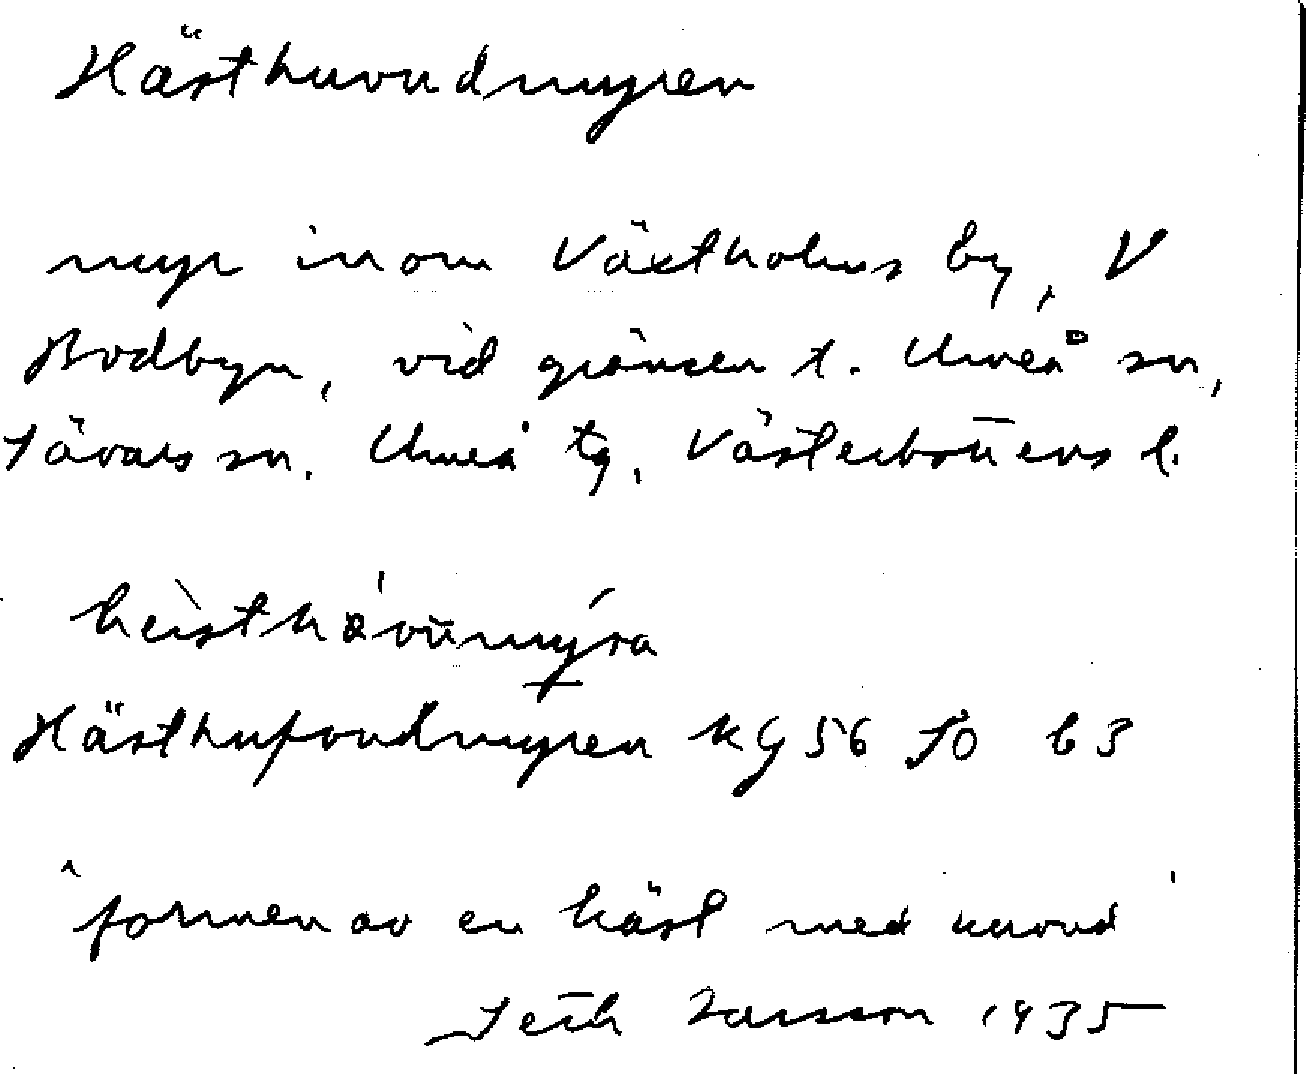 Hästhuvudmyren
myr inom Västholms by, V
Bodbyn, vid gränsen t. Umeå sn,
Sävars sn. Umeå tg, Västerbottens l.
Hästhufvudmyren KG 56 SO b3
"formen av en häst med huvud"
Seth Larsson 1935